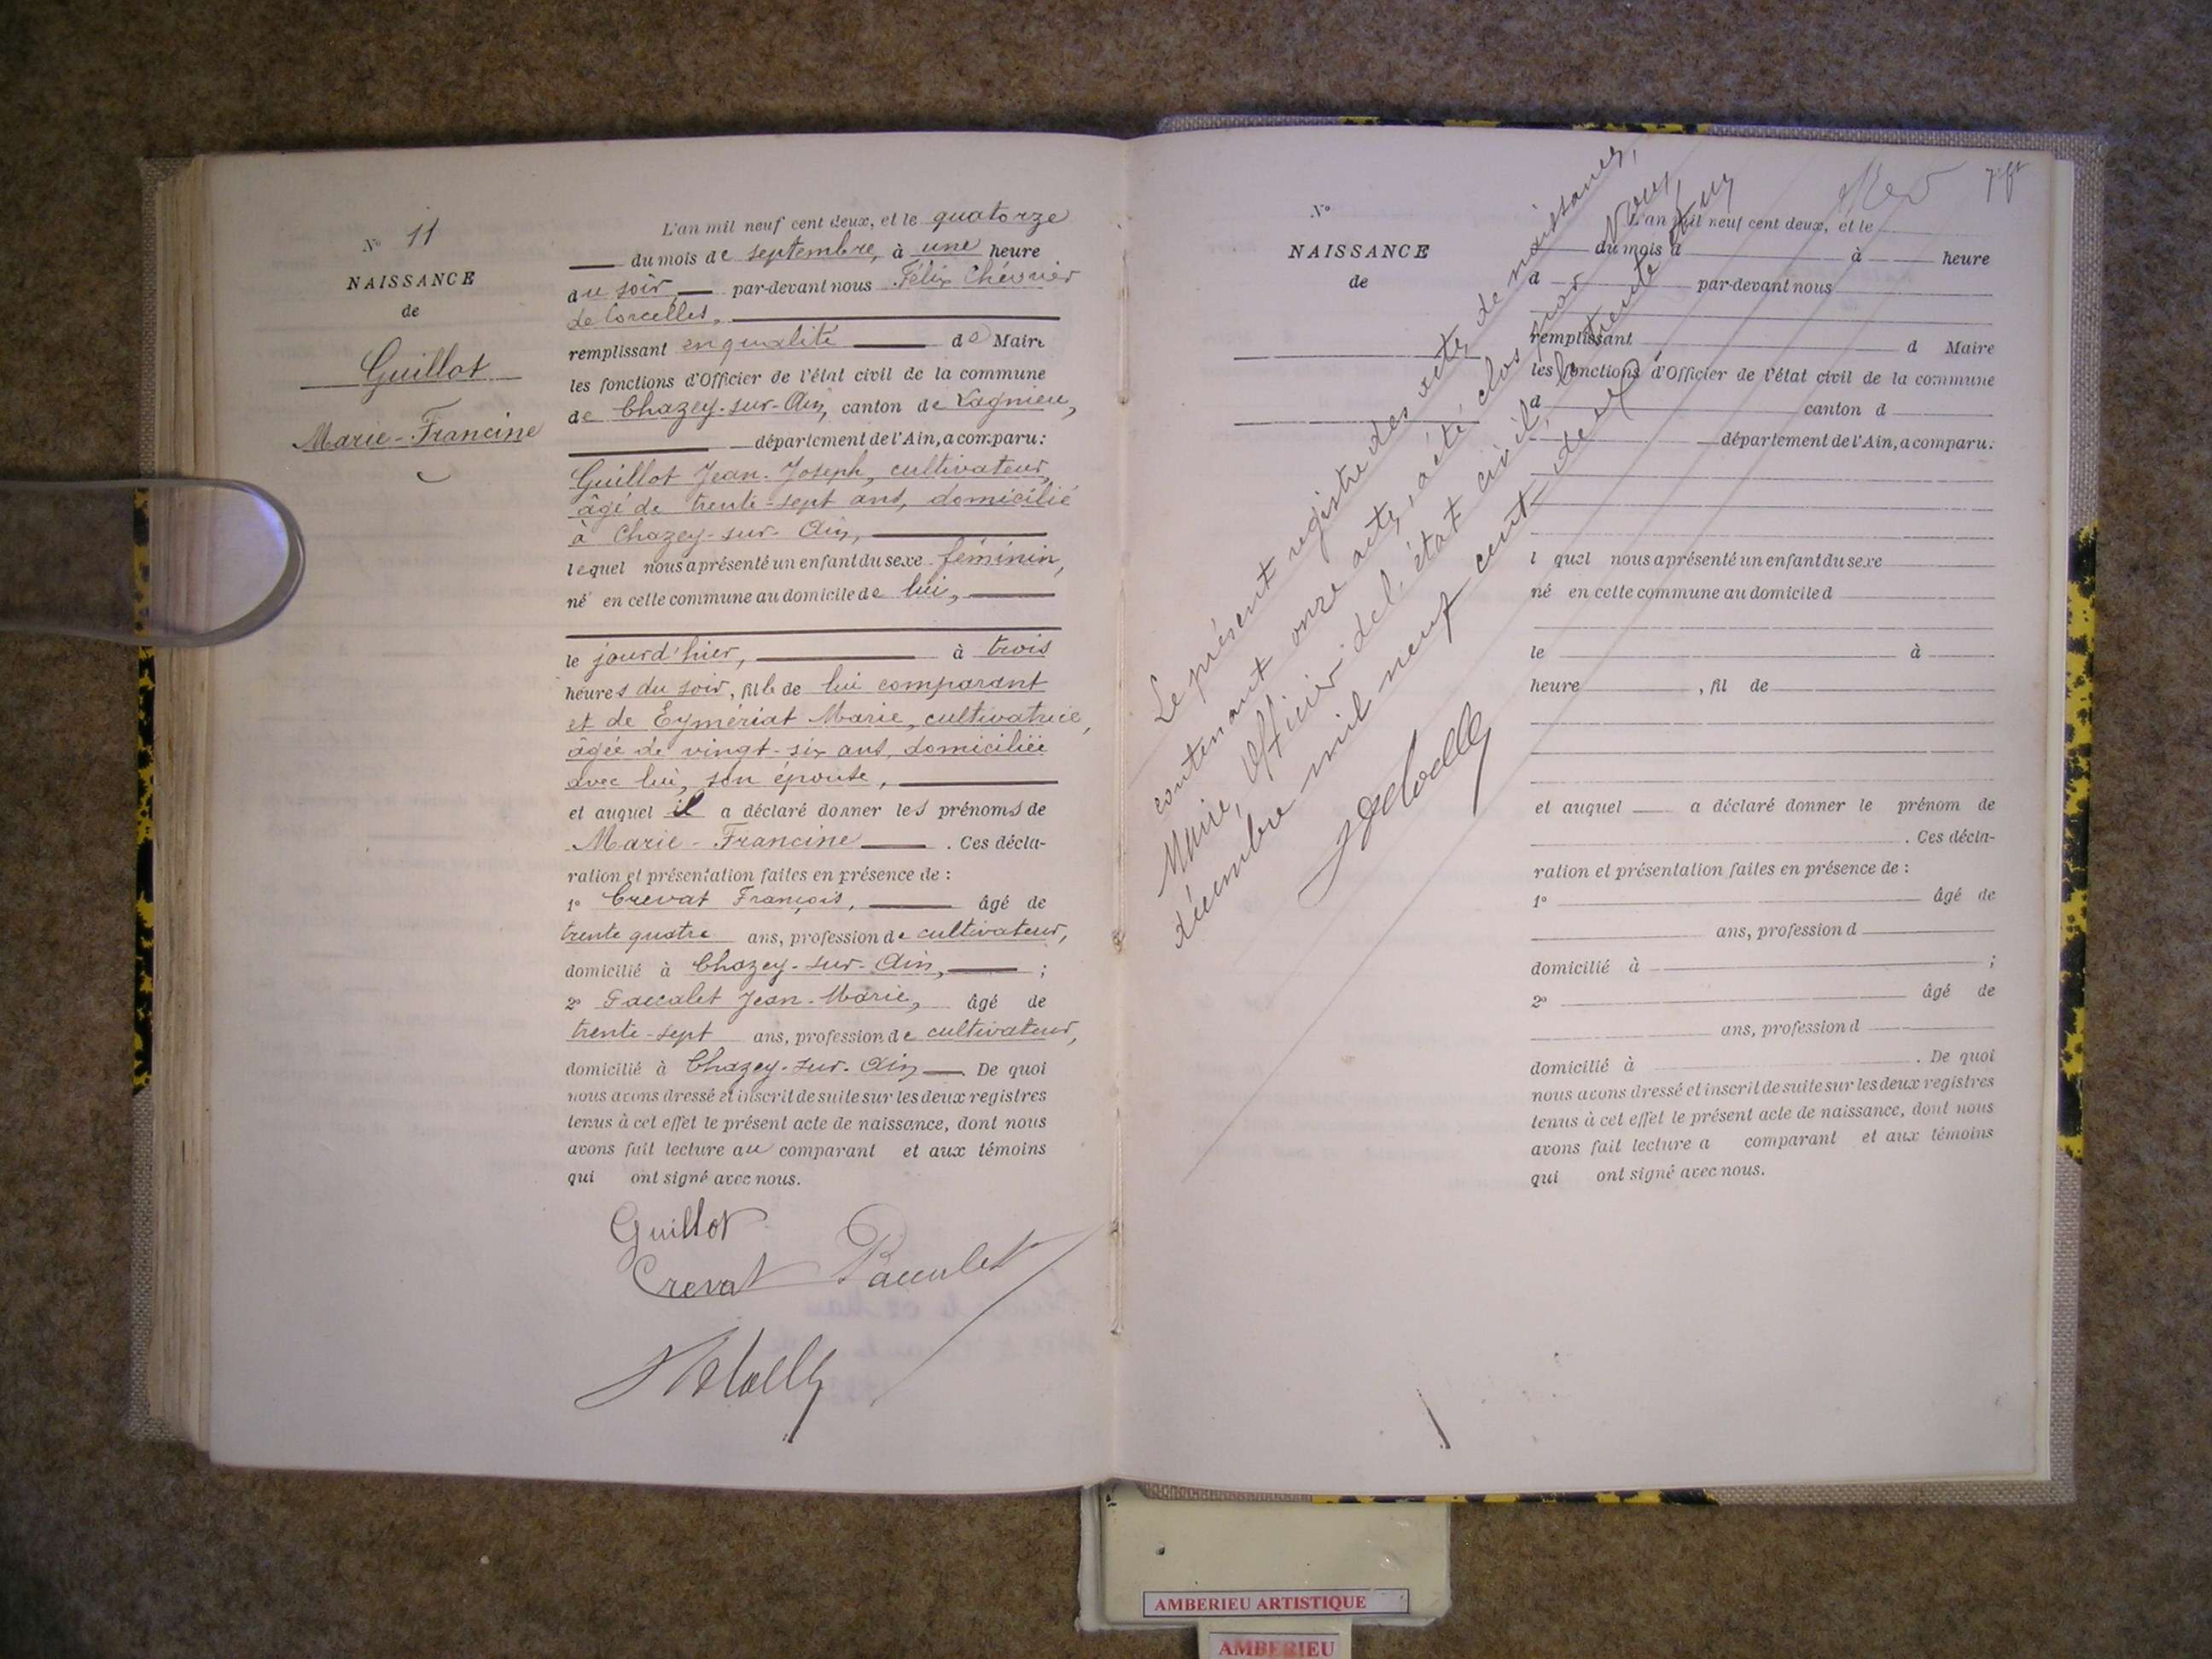 N° 11
NAISSANCE
de
Guillot
Marie-Francine
L'an mil neuf cent deux, et le quatorze
du mois de septembre, à une heure
du soir, par-devant nous Félix Chévrier
de Corcelles,
remplissant en qualité de Maire
les fonctions d'Officier de l'état civil de la commune
de Chazey-sur-Ain, canton de Lagnieu,
département de l'Ain, a comparu:
Guillot Jean-Joseph, cultivateur,
âgé de trente-sept ans, domicilié
à Chazey-sur-Ain,
lequel nous a présenté un enfant du sexe féminin,
né en cette commune au domicile de lui,
le jourd'hier, à trois
heures du soir, fille de lui comparant
et de Eymériat Marie, cultivatrice,
âgée de vingt-six ans, domiciliée
avec lui, son épouse,
et auquel il a déclaré donner les prénoms de
Marie-Francine. Ces décla-
ration et présentation faites en présence de :
1° Crevat François, âgé de
trente quatre ans, profession de cultivateur,
domicilié à Chazey-sur-Ain, ;
2° Paccalet Jean-Marie, âgé de
trente-sept ans, profession de cultivateur,
domicilié à Chazey-sur-Ain. De quoi
nous avons dressé et inscrit de suite sur les deux registres
tenus à cet effet le présent acte de naissance, dont nous
avons fait lecture au comparant et aux témoins
qui ont signé avec nous.
Guillot
Crevat Paccalet
N°
NAISSANCE
de
L'an mil neuf cent deux, et le
du mois d à heure
d par-devant nous
remplissant d Maire
les fonctions d'Officier de l'état civil de la commune
d canton d
département de l'Ain, a comparu:
l quel nous a présenté un enfant du sexe
né en cette commune au domicile d
le à
heure , fil de
et auquel a déclaré donner le prénom de
. Ces décla-
ration et présentation faites en présence de :
1° âgé de
ans, profession d
domicilié à ;
2° âgé de
ans, profession d
domicilié à . De quoi
nous avons dressé et inscrit de suite sur les deux registres
tenus à cet effet le présent acte de naissance, dont nous
avons fait lecture a comparant et aux témoins
qui ont signé avec nous.
Le présent registre des actes de naissances,
contenant onze actes, a été clos par Nous,
Maire, Officier de l'état civil, le trente et un
décembre mil neuf cent-deux
AMBERIEU ARTISTIQUE
AMBERIEU